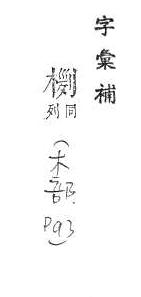 字彙補
同列(木部.P93)